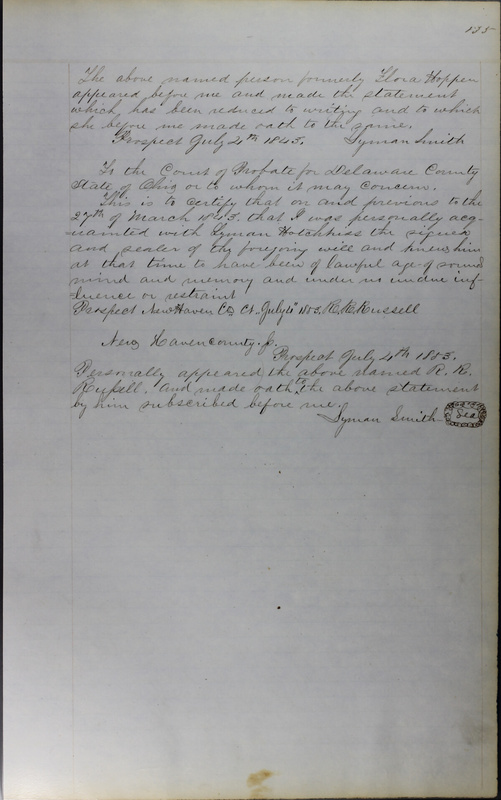 135
The above named person formerly Flora Hoppen
appeared before me and made the statement
which has been reduced to writing and to which
she before me made oath to the same.
Prospect July 4th 1843. Lyman Smith
To the Court of Probate for Delaware County
State of Ohio or to whom it may Concern.
This is to certify that on and previous to the
27th of March 1843. that I was personally acq-
uainted with Lyman Hotchkiss the signer
and sealer of the foregoing will and knew him
at that time to have been of lawful age of sound
mind and memory and under no undue inf-
luence or restraint
Prospect New Haven Co Ct. July 4" 1853. R. R. Russell
New Haven County. J.
Prospect July 4th 1853.
Personally appeared the above named R. R.
Russell. And made oath to the above statement
by him subscribed before me.
Lyman Smith Seal